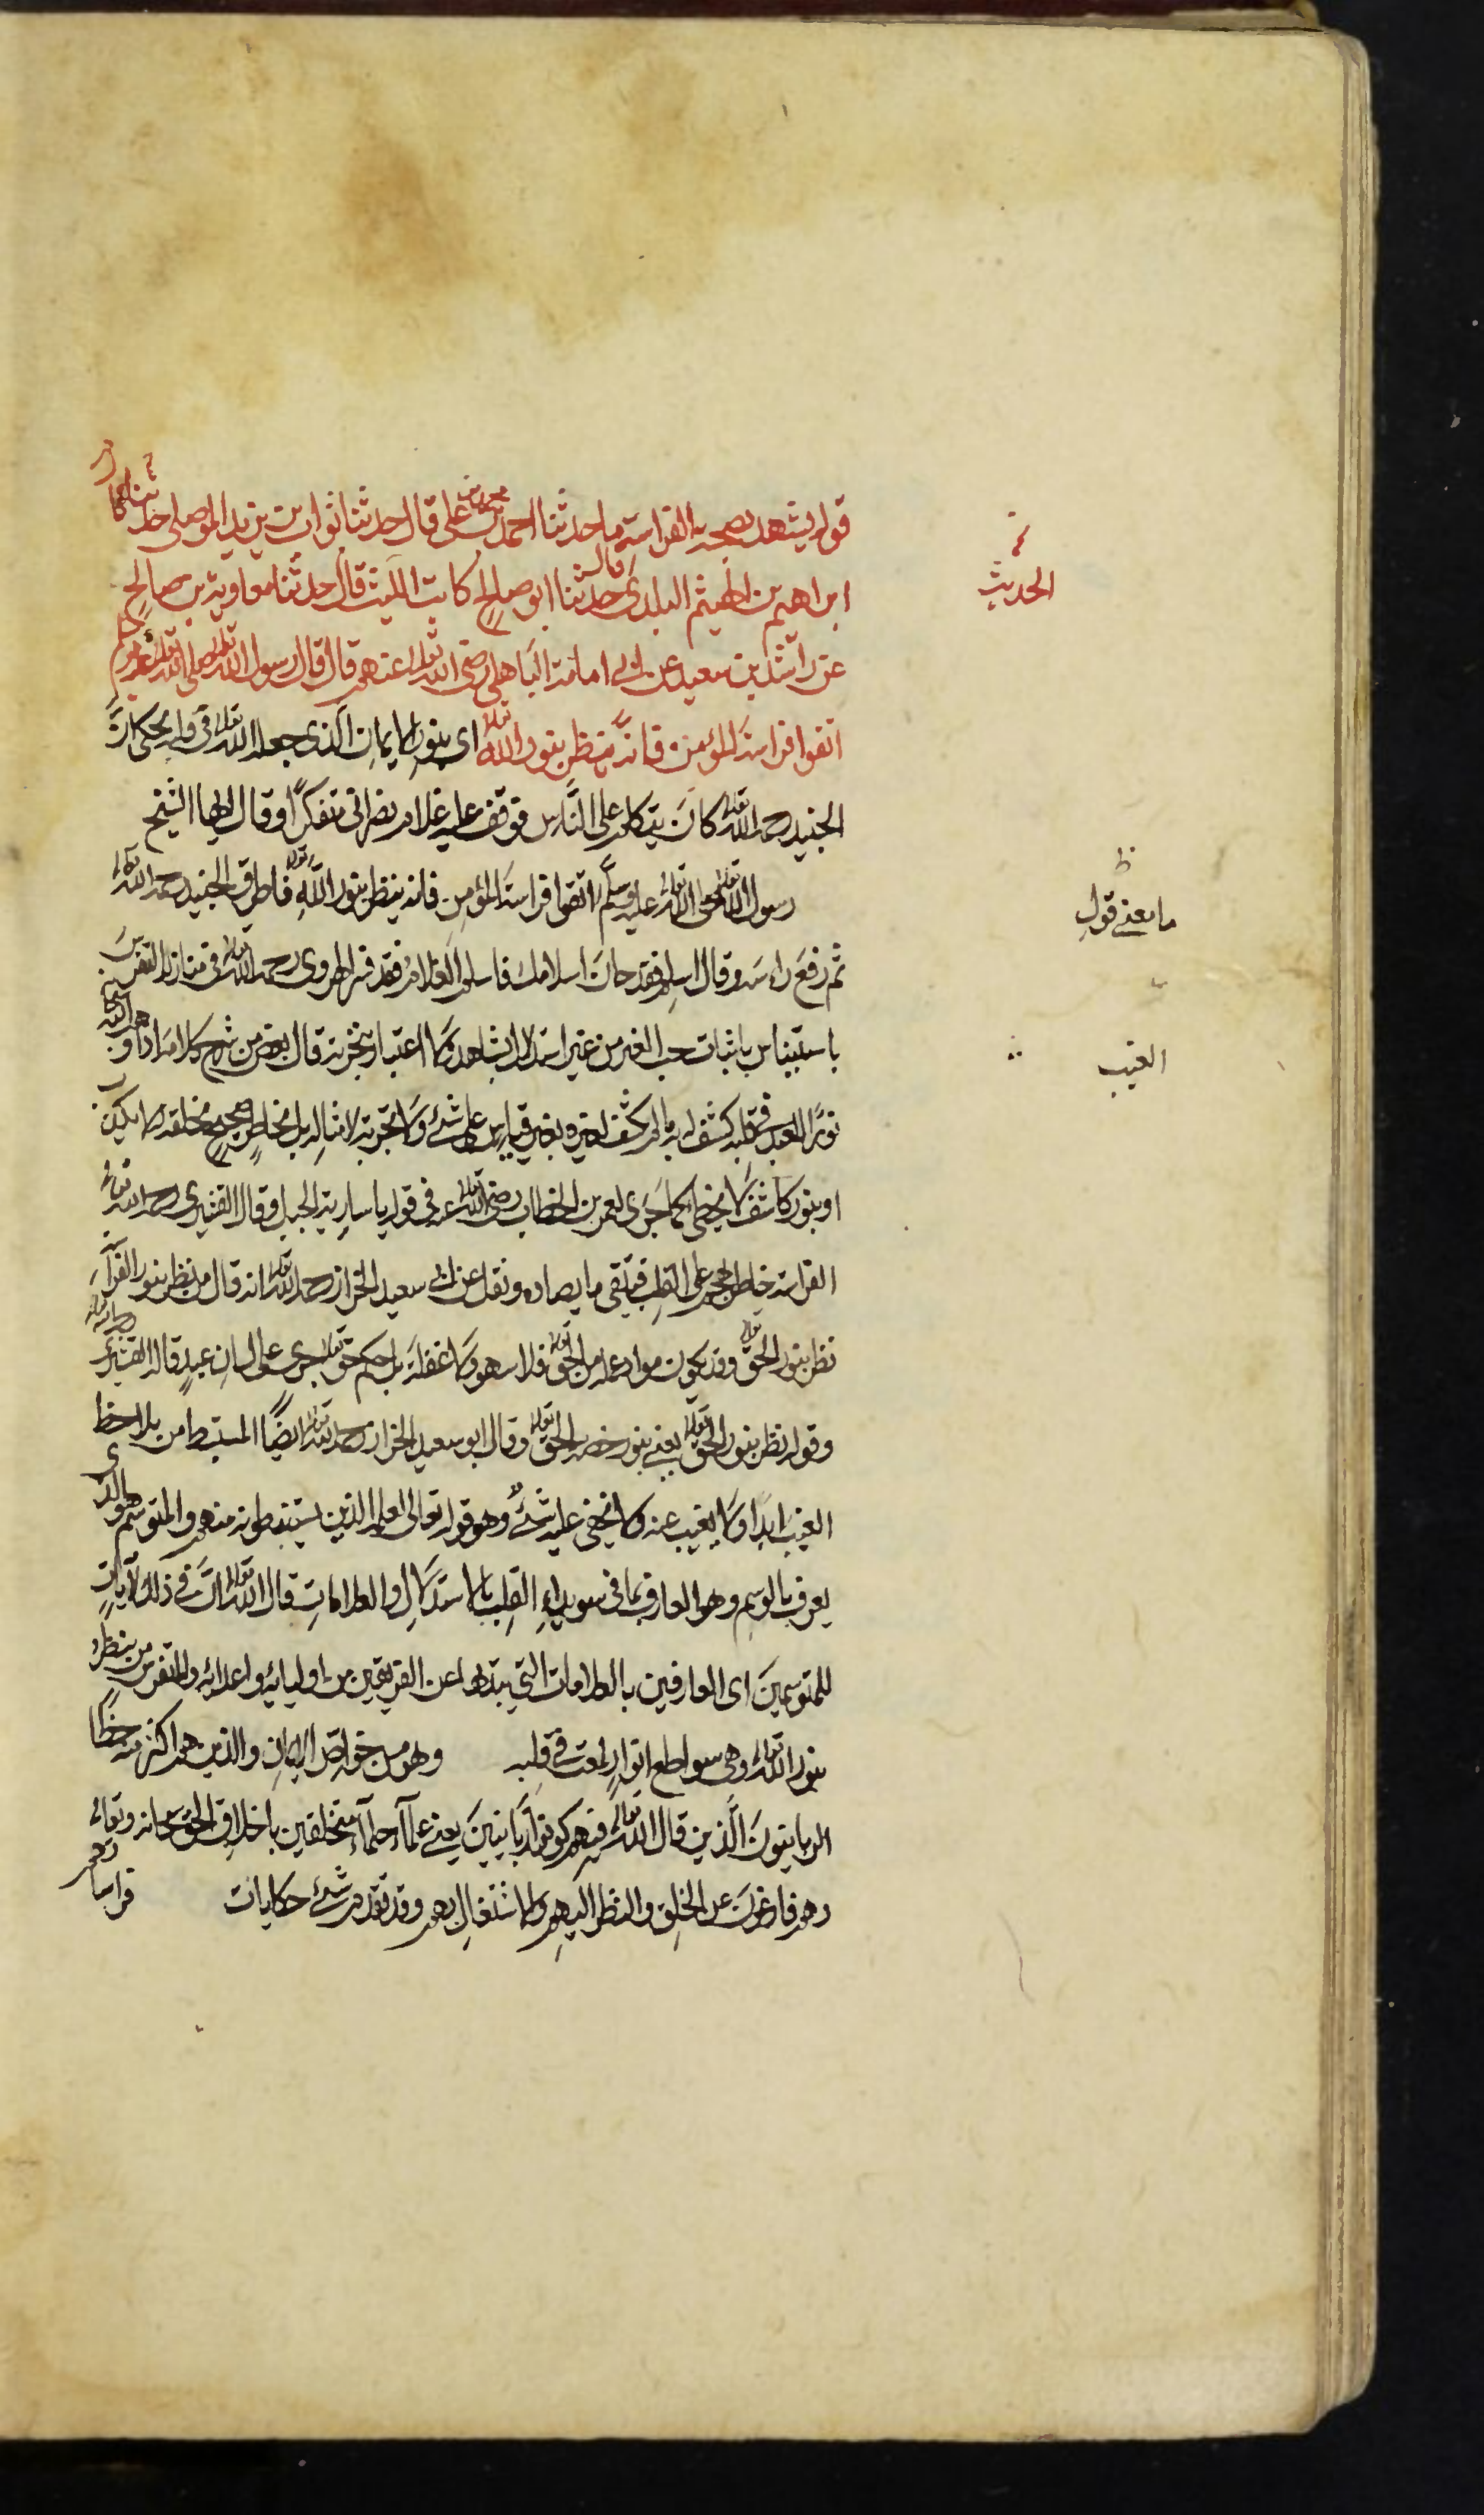 قوله يشهد بصحة الفراسة ما حدثنا احمد بن علي قال حدثنا ثوابت بن يزيد الموصلي حدثنا
الحديث
ابراهيم بن الهيثم البلدي قال حدثنا ابو صالح كاتب الليث قال حدثنا معاوية بن صالح
عن راشد بن سعيد عن ابي امامة الباهلي رضي الله تعالى عنهم قال قال رسول الله تعالى صلى الله تعالى عليه وسلم
اتقوا فراسة المؤمن فانه ينظر بنور الله تعالى اى بنور الايمان الذى جعله الله تعالى في قلبه يحكى ان
الجنيد رحمه الله تعالى كان يتكلم على الناس فوقف عليه غلام نصراني متفكرا وقال ايها الشيخ
ما معنے قول
رسول الله تعالى صلى الله تعالى عليه وسلم اتقوا فراسة المؤمن فانه ينظر بنور الله تعالى فاطرق الجنيد رحمه الله تعالى
ثم رفع راسه وقال اسلم فقد حان اسلامك فاسلم الغلام فقد فسر الهروى رحمه الله تعالى في منازله التفرس
باستيناس باثبات حب الغير من غير استدلال بشاهد ولا اعتبار بتجربة قال بعض من شرح كلامه اذا
الغيب
نور العبد في قلبه كشف له به ما لم يكشف لغيره بغير قياس على شئ ولا تجربة لامثاله بل بخاطر صحيح
او بنور كاشف لا يخطى كما جرى لعمر بن الخطاب رضي الله تعالى عنه في قوله يا سارية الجبل وقال القشيرى رحمه الله تعالى
الفراسة خاطر هجم على القلب فينفى ما يضاده ونقل عن ابي سعيد الخراز رحمه الله تعالى انه قال من نظر بنور الفراسة
نظر بنور الحق تعالى وقد يكون مواد علمه من الحق تعالى فلا سهو ولا غفلة بل حكم حق تعالى جرى على لسان عبد قال القشيرى
وقوله نظر بنور الحق تعالى يعنے بنور خصه به الحق تعالى وقال ابو سعيد الخراز رحمه الله تعالى ايضا المستنبط من يلاحظ
الغيب ابدا ولا يغيب عنه ولا يخفى عليه شئ وهو قوله تعالى لعلمه الذين يستنبطونه منهم والمتوسم هو الذى
يعرف بالوسم وهو العارف بما في سويداء القلب بالاستدلال والعلامات قال الله تعالى ان في ذلك لآيات
للمتوسمين اى العارفين بالعلامات التي يبديها عن الفريقين من اوليائه واعدائه والمتفرس من ينظر
بنور الله تعالى وهى سواطع انوار لمعت في قلبه وهو من خواص الايمان والذين هم اكثر منه حظا
الربانيون الذين قال الله تعالى فيهم كونوا ربانيين يعنے علماء حلماء متخلقين باخلاق الحق سبحانه وتعالى
وهم فارغون عن الخلق والنظر اليهم والاشتغال بهم وقد تقدم شئ حكايات فراساتهم